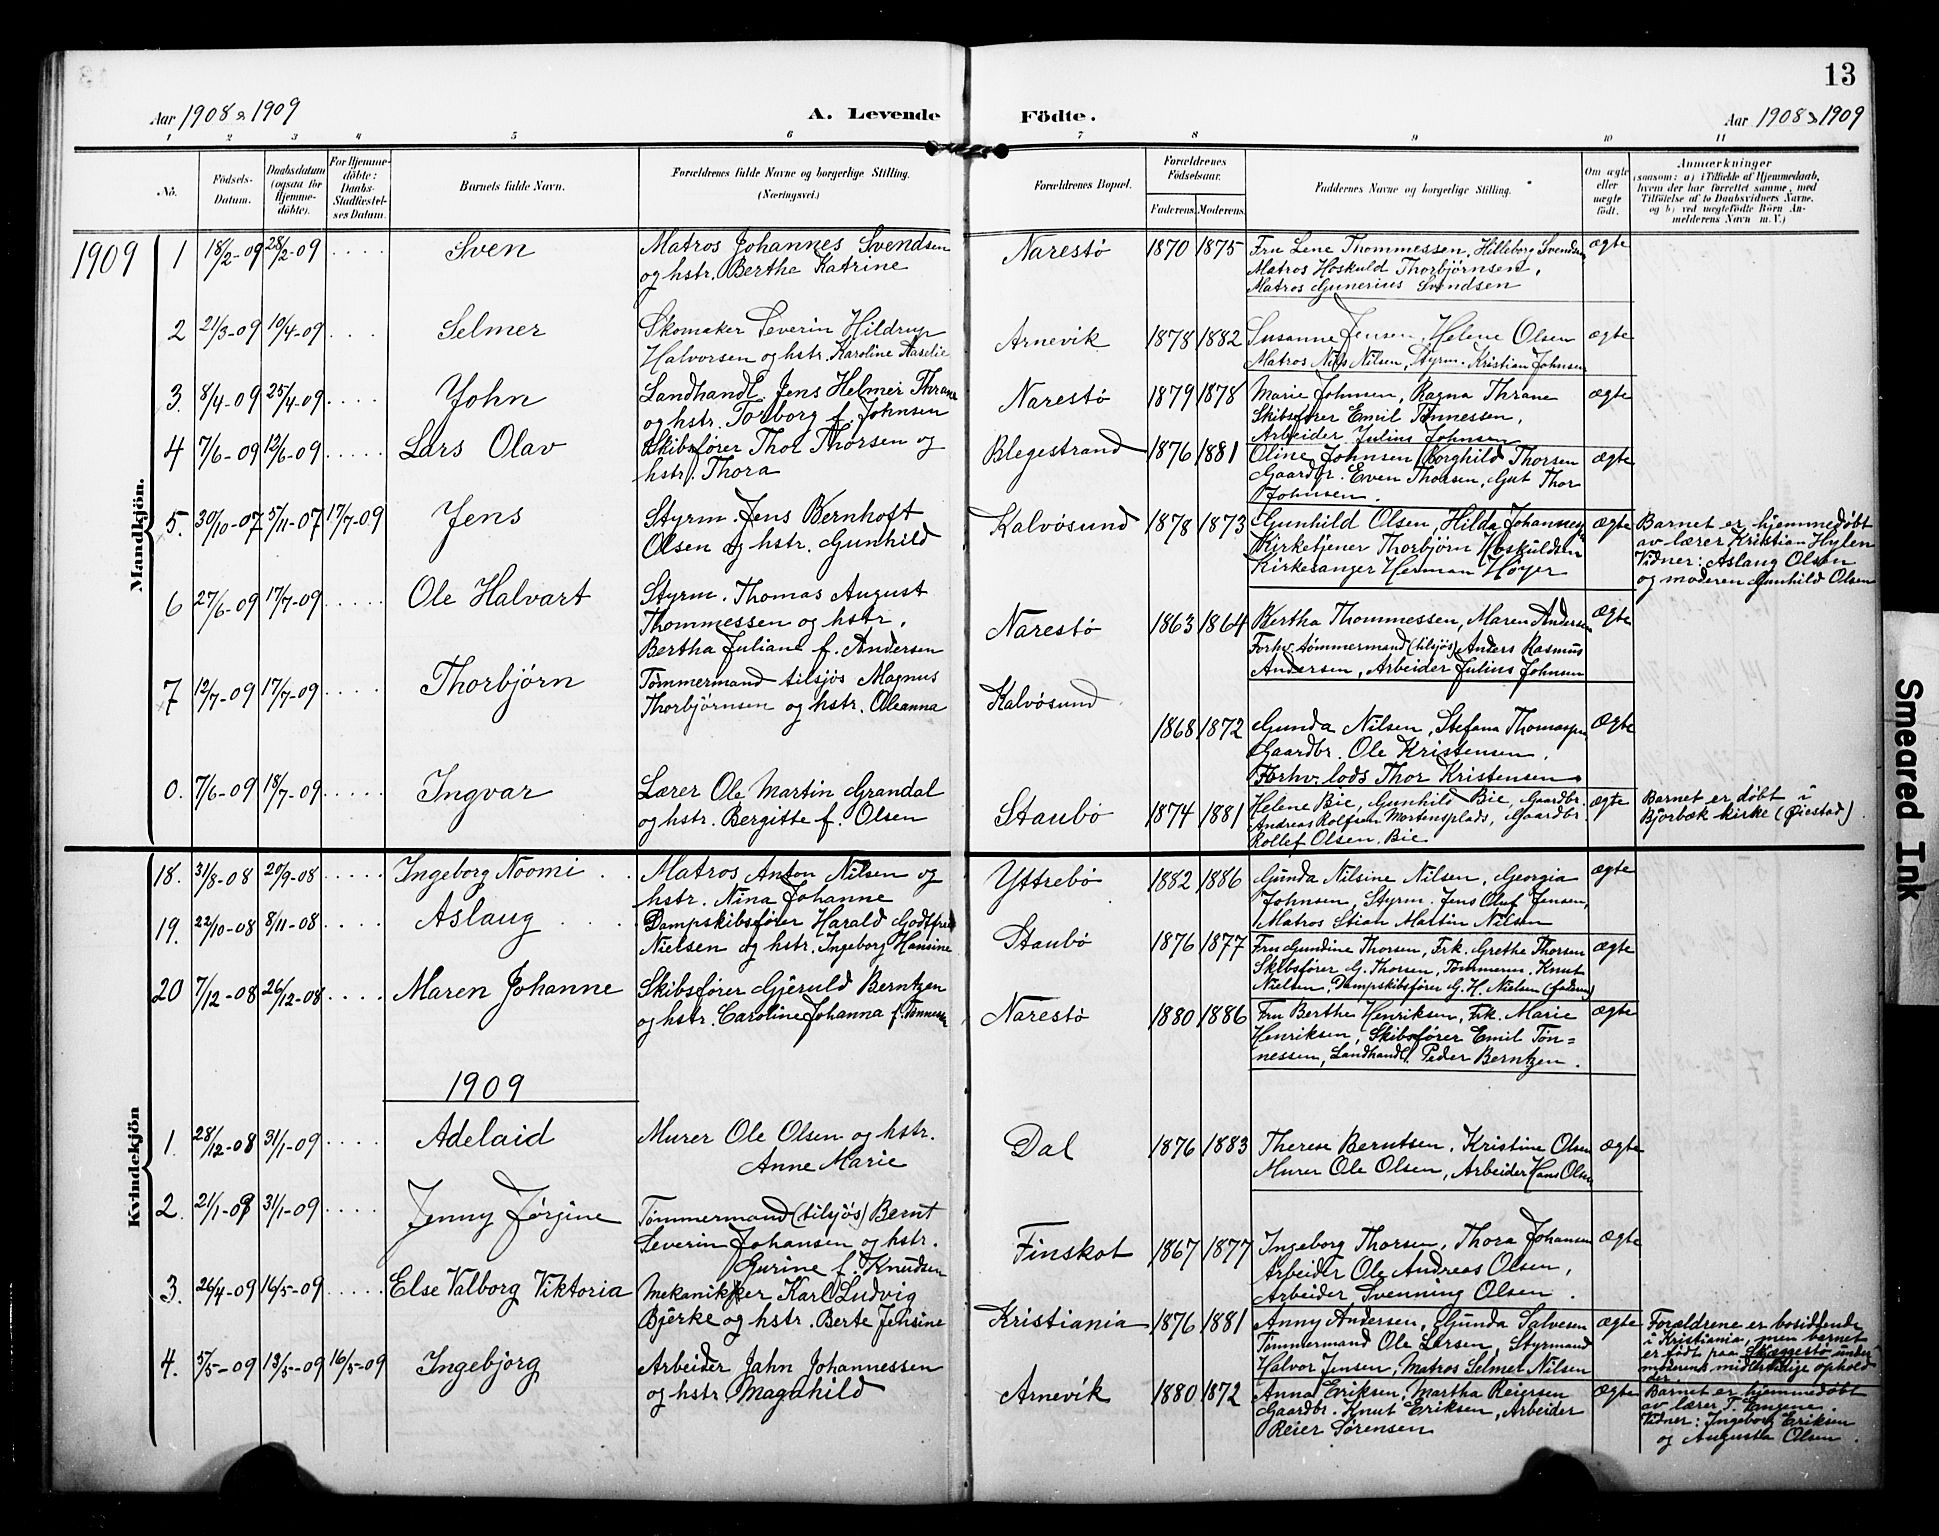 13
Aar 1908 & 1909
A. Levende
Födte.
Aar 1908 & 1909
1 2 3 4 5 6 7 8 9 10 11
No.
Födsels-Datum.
Daabsdatum (ogsaa for Hjemme-döbte).
For Hjemme-döbte: Daabs-Stadfæstel-ses Datum.
Barnets fulde Navn.
Forældrenes fulde Navne og borgerlige Stilling.
(Næringsvei.)
Forældrenes Bopæl.
Forældrenes Födselsaar.
Faderens. Moderens.
Faddernes Navne og borgerlige Stilling.
Om ægte eller uægte födt.
Anmærkninger
(saasom: a) i Tilfælde af Hjemmedaab,
hvem der har forrettet samme, med
Tilföielse af to Daabsvidners Navne.
og b) ved uægtefödte Börn An-
melderens Navn m. V.)
1909
Mandkjön.
1 18/2-09 28/2-09 .... Sven
Matros Johannes Svendsen
og hstr. Berthe Katrine
Narestø 1870 1875
Fru Lene Thommessen, Hilleborg Svendsen
Matros Høskuld Thorbjørnsen,
Matros Gunerius Svendsen
ægte
2 21/3-09 10/4-09 .... Selmer
Skomaker Severin Hildrup
Halvorsen og hstr. Karoline Aaselie
Arnevik 1878 1882
Susanne Jensen, Helene Olsen
Matros Nils Nilsen, Styrm. Kristian Johnsen
ægte
3. 8/4-09 25/4-09 .... John
Landhandl. Jens Helmer Thrane
og hstr. Torborg f. Johnsen
Narestø 1879 1878
Marie Johnsen, Ragna Thrane
Skibsfører Emil Tønnessen,
Arbeider Julius Johnsen
ægte
4 7/6-09 12/6-09 ..... Lars Olav
Skibsfører Thor Thorsen og
hstr. Thora
Blegestrand 1876 1881
Oline Johnsen, Borghild Thorsen
Gaardbr. Even Thorsen, Gut Thor
Johnsen.
ægte
5. 30/10-07 5/11-07 17/7-09 Jens
Styrm. Jens Bernhoft
Olsen og hstr. Gunhild
Kalvøsund 1878 1873
Gunhild Olsen, Hilda Johannesen
Kirketjener Thorbjørn Høskuldsen
Kirkesanger Herman Høyer
ægte
Barnet er hjemmedøbt
av lærer Kristian Hylen
Vidner: Aslaug Olsen
og moderen Gunhild Olsen
6 27/6-09 17/7-09 ..... Ole Halvart
Styrm. Thomas August
Thommessen og hstr.
Bertha Juliane f. Andersen
Narestø 1863 1864
Bertha Thommessen, Maren Andersen
Forhv. tømmermand (tilsjøs) Anders Rasmus
Andersen, Arbeider Julius Johnsen
ægte
7 12/7-09 17/7-09 ..... Thorbjørn
Tømmermand tilsjøs Magnus
Thorbjørnsen og hstr. Oleanna
Kalvøsund 1868 1872
Gunda Nilsen, Stefana Thomassen
Gaardbr. Ole Kristensen,
Forhv. lods Thor Kristensen
ægte
0. 7/6-09 18/7-09 ..... Ingvar
Lærer Ole Martin Grandal
og hstr. Bergitte f. Olsen
Staubø 1874 1881
Helene Bie, Gunhild Bie, Gaardbr.
Andreas Rolfsen Mortensplads, Gaardbr.
Rollef Olsen Bie
ægte
Barnet er døbt i
Bjorbæk kirke (Øiestad)
Kvindekjön
18. 31/8-08 20/9-08 ..... Ingeborg Noomi
Matros Anton Nilsen og
hstr. Nina Johanne
Yttrebø 1882 1886
Gunda Nilsine Nilsen, Georgia
Johnsen, Styrm. Jens Oluf Jensen,
Matros Stian Martin Nilsen
ægte
19. 22/10-08 8/11-08 ..... Aslaug
Dampskibsfører Harald Godtfred
Nielsen og hstr. Ingeborg Hansine
Staubø 1876 1877
Fru Gundine Thorsen, Frk. Grethe Thorsen
Skibsfører G. Thorsen, Tømmerm. Knut
Nielsen, Dampskibsfører G. H. Nielsen (faderen)
ægte
20 7/12-08 26/12-08 .... Maren Johanne
Skibsfører Gjeruld Berntzen
og hstr. Caroline Johanna f. Tønnessen
Narestø 1880 1886
Fru Berthe Henriksen, Frk. Marie
Henriksen, Skibsfører Emil Tøn=
nessen, Landhandl. Peder Berntzen.
ægte
1909
1. 28/12-08 31/1-09 .... Adelaid
Murer Ole Olsen og hstr.
Anne Marie
Dal 1876 1883
Therese Berntsen, Kristine Olsen
Murer Ole Olsen, Arbeider Hans Olsen
ægte
2. 21/1-09 31/1-09 .... Jenny Jørgine
Tømmermand (tilsjøs) Bernt
Severin Johansen og hstr.
Gurine f. Knudsen
Finskot 1867 1877
Ingeborg Thorsen, Thora Johansen
Arbeider Ole Andreas Olsen,
Arbeider Svenning Olsen.
ægte
3. 26/4-09 16/5-09 ..... Else Valborg Viktoria
Mekaniker Karl Ludvig
Bjerke og hstr. Berte Jensine
Kristiania 1876 1881
Anny Andersen, Gunda Salvesen
Tømmermand Ole Larsen, Styrmand
Halvor Jensen, Matros Selmer Nilsen
ægte
Forældrene er bosiddende
i Kristiania, men barnet
er født paa Skaggestø under
moderens midlertidige ophold
der.
4. 5/5-09 13/5-09 16/5-09 Ingebjorg
Arbeider Jahn Johannessen
og hstr. Magnhild
Arnevik 1880 1872
Anna Eriksen, Martha Reiersen
Gaardbr. Knut Eriksen, Arbeider
Reier Sørensen
ægte
Barnet er hjemmedøbt
av lærer T. Tangene.
Vidner: Ingeborg Eriksen
og Augusta Olsen.
Smeared Ink